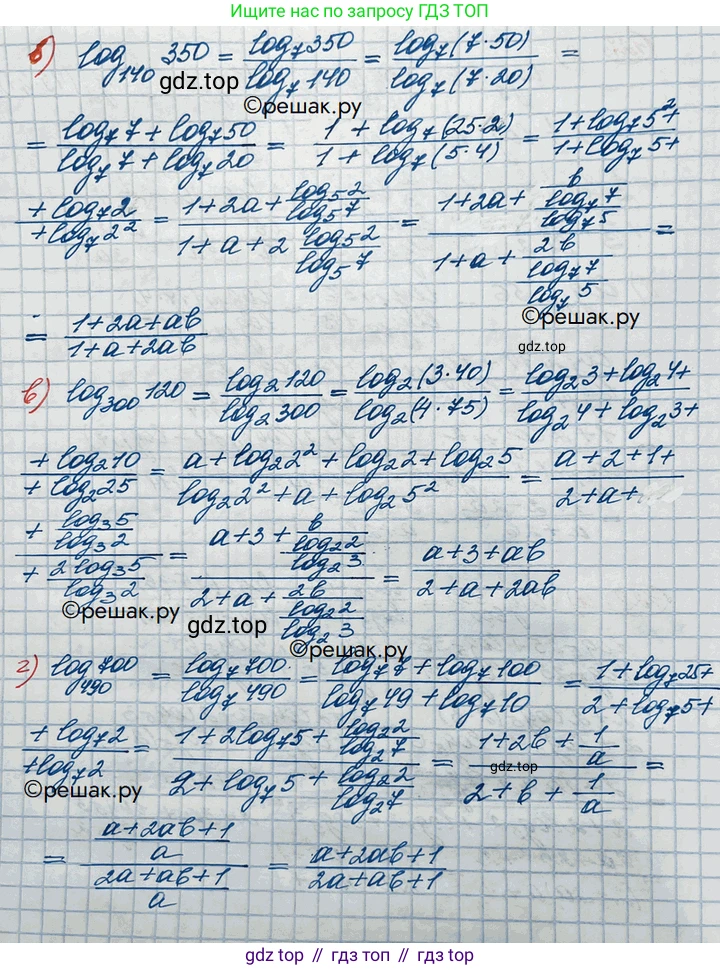 Ищите нас по запросу ГДЗ ТОП
б) log₁₄₀ 350 = log₇350 / log₇140 = log₇(7·50) / log₇(7·20) =
gdz.top
©решак.ру
= (log₇7 + log₇50) / (log₇7 + log₇20) = (1 + log₇(25·2)) / (1 + log₇(5·4)) = (1 + log₇5² + / (1 + log₇5 +
+ log₇2) / + log₇2²) = (1 + 2a + log₅2 / log₅7) / (1 + a + 2 log₅2 / log₅7) = (1 + 2a + b / (log₇7 / log₇5)) / (1 + a + 2b / (log₇7 / log₇5)) =
©решак.ру
= (1 + 2a + ab) / (1 + a + 2ab)
gdz.top
в) log₃₀₀ 120 = log₂120 / log₂300 = log₂(3·40) / log₂(4·75) = (log₂3 + log₂4 + / (log₂4 + log₂3 +
+ log₂10) / + log₂25) = (a + log₂2² + log₂2 + log₂5) / (log₂2² + a + log₂5²) = (a + 2 + 1 + / (2 + a +
+ log₃5 / log₃2) / + 2log₃5 / log₃2) = (a + 3 + b / (log₂2 / log₂3)) / (2 + a + 2b / (log₂2 / log₂3)) = (a + 3 + ab) / (2 + a + 2ab)
©решак.ру
gdz.top
©решак.ру
г) log₄₉₀ 700 = log₇700 / log₇490 = (log₇7 + log₇100) / (log₇49 + log₇10) = (1 + log₇25 + / (2 + log₇5 +
+ log₇2) / + log₇2) = (1 + 2log₇5 + log₂2 / log₂7) / (2 + log₇5 + log₂2 / log₂7) = (1 + 2b + 1/a) / (2 + b + 1/a) =
gdz.top
©решак.ру
= ((a + 2ab + 1) / a) / ((2a + ab + 1) / a) = (a + 2ab + 1) / (2a + ab + 1)
gdz top // гдз топ // gdz.top